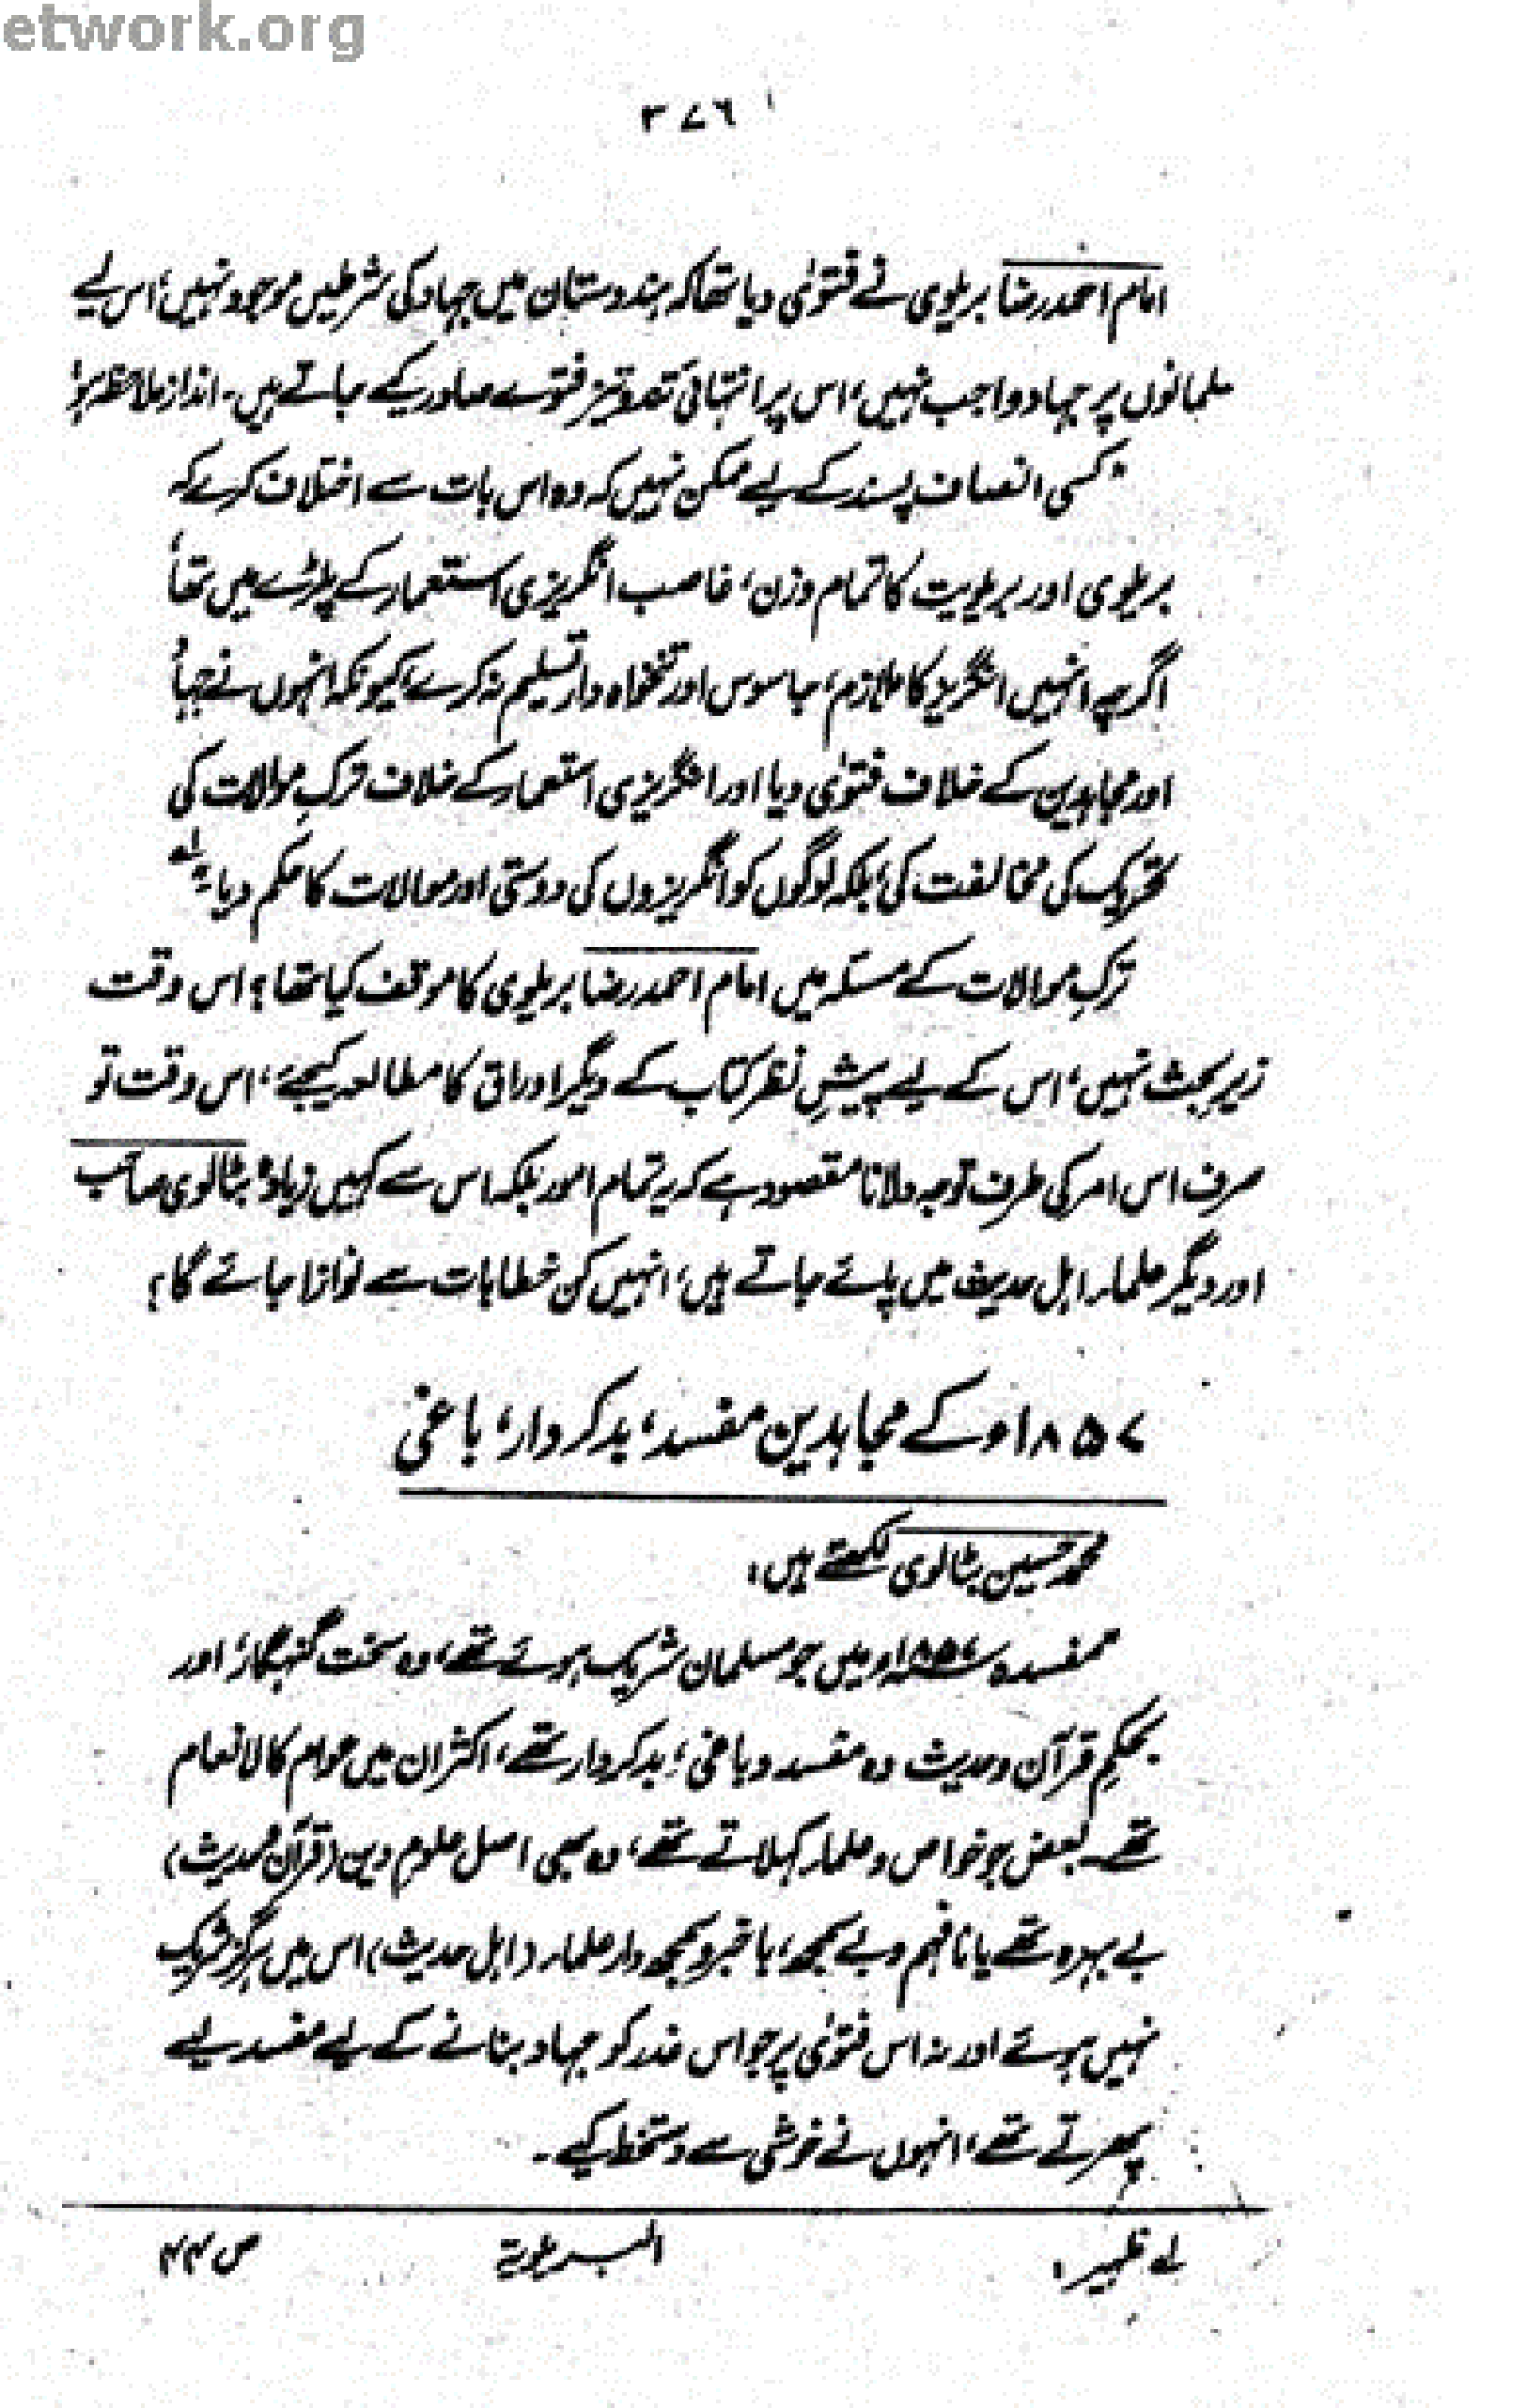 etwork.org
۳۷۶
امام احمد رضا بریلوی نے فتویٰ دیا تھا کہ ہندوستان میں جہاد کی شرطیں موجود نہیں، اس لیے
مسلمانوں پر جہاد واجب نہیں، اس پر انتہائی تند و تیز فتوے صادر کیے جاتے ہیں۔ انداز ملاحظہ ہو:
"کسی انصاف پسند کے لیے ممکن نہیں کہ وہ اس بات سے اختلاف کرے کہ
بریلوی اور بریلویت کا تمام وزن، غاصب انگریزی استعمار کے پلڑے میں تھا،
اگرچہ انہیں انگریز کا ملازم، جاسوس اور تنخواہ دار تسلیم نہ کرے، کیونکہ انہوں نے جہاد
اور مجاہدین کے خلاف فتویٰ دیا اور انگریزی استعمار کے خلاف ترکِ موالات کی
تحریک کی مخالفت کی، بلکہ لوگوں کو انگریزوں کی دوستی اور موالات کا حکم دیا۔" لے
ترکِ موالات کے مسئلہ میں امام احمد رضا بریلوی کا موقف کیا تھا؟ اس وقت
زیرِ بحث نہیں، اس کے لیے پیشِ نظر کتاب کے دیگر اوراق کا مطالعہ کیجئے، اس وقت تو
صرف اس امر کی طرف توجہ دلانا مقصود ہے کہ یہ تمام امور بلکہ اس سے کہیں زیادہ بٹالوی صاحب
اور دیگر علماء اہل حدیث میں پائے جاتے ہیں، انہیں کن خطابات سے نوازا جائے گا؟
۱۸۵۷ء کے مجاہدین مفسد، بدکردار، باغی
محمد حسین بٹالوی لکھتے ہیں:
مفسدہ ۱۸۵۷ء میں جو مسلمان شریک ہوئے تھے، وہ سخت گنہگار، اور
بحکمِ قرآن و حدیث وہ مفسد و باغی، بدکردار تھے، اکثر ان میں عوام کالانعام
تھے۔ بعض جو خواص و علماء کہلاتے تھے، وہ بھی اصل علوم دین (قرآن و حدیث)
بے بہرہ تھے یا نافہم و بے سمجھ، باخبر و سمجھ دار علماء (اہل حدیث) اس میں ہرگز شریک
نہیں ہوئے اور نہ اس فتویٰ پر جو اس غدر کو جہاد بنانے کے لیے مفسد لیے
پھرتے تھے، انہوں نے خوشی سے دستخط کیے۔
لے ظہیر: البریلویۃ ص ۴۴